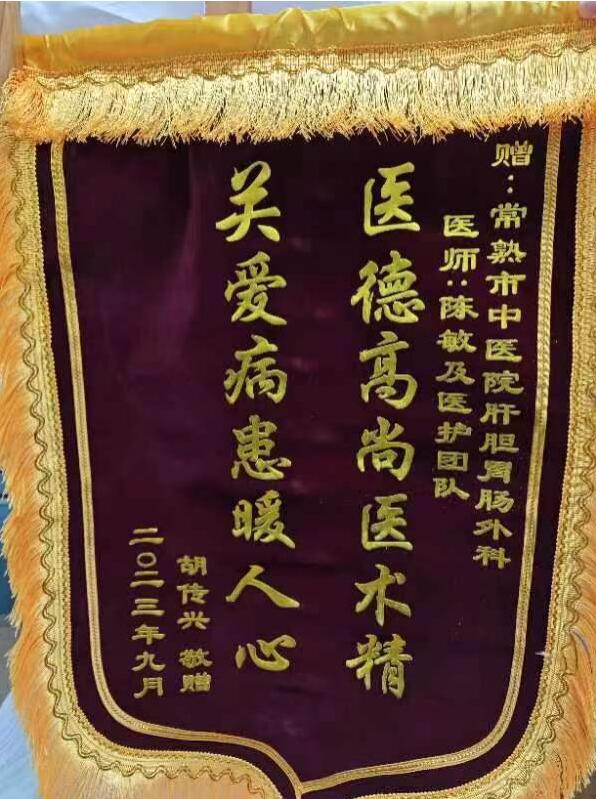 赠：常熟市中医院肝胆胃肠外科
医师：陈敏及医护团队
医德高尚医术精
关爱病患暖人心
胡传兴 敬赠
二〇二三年九月